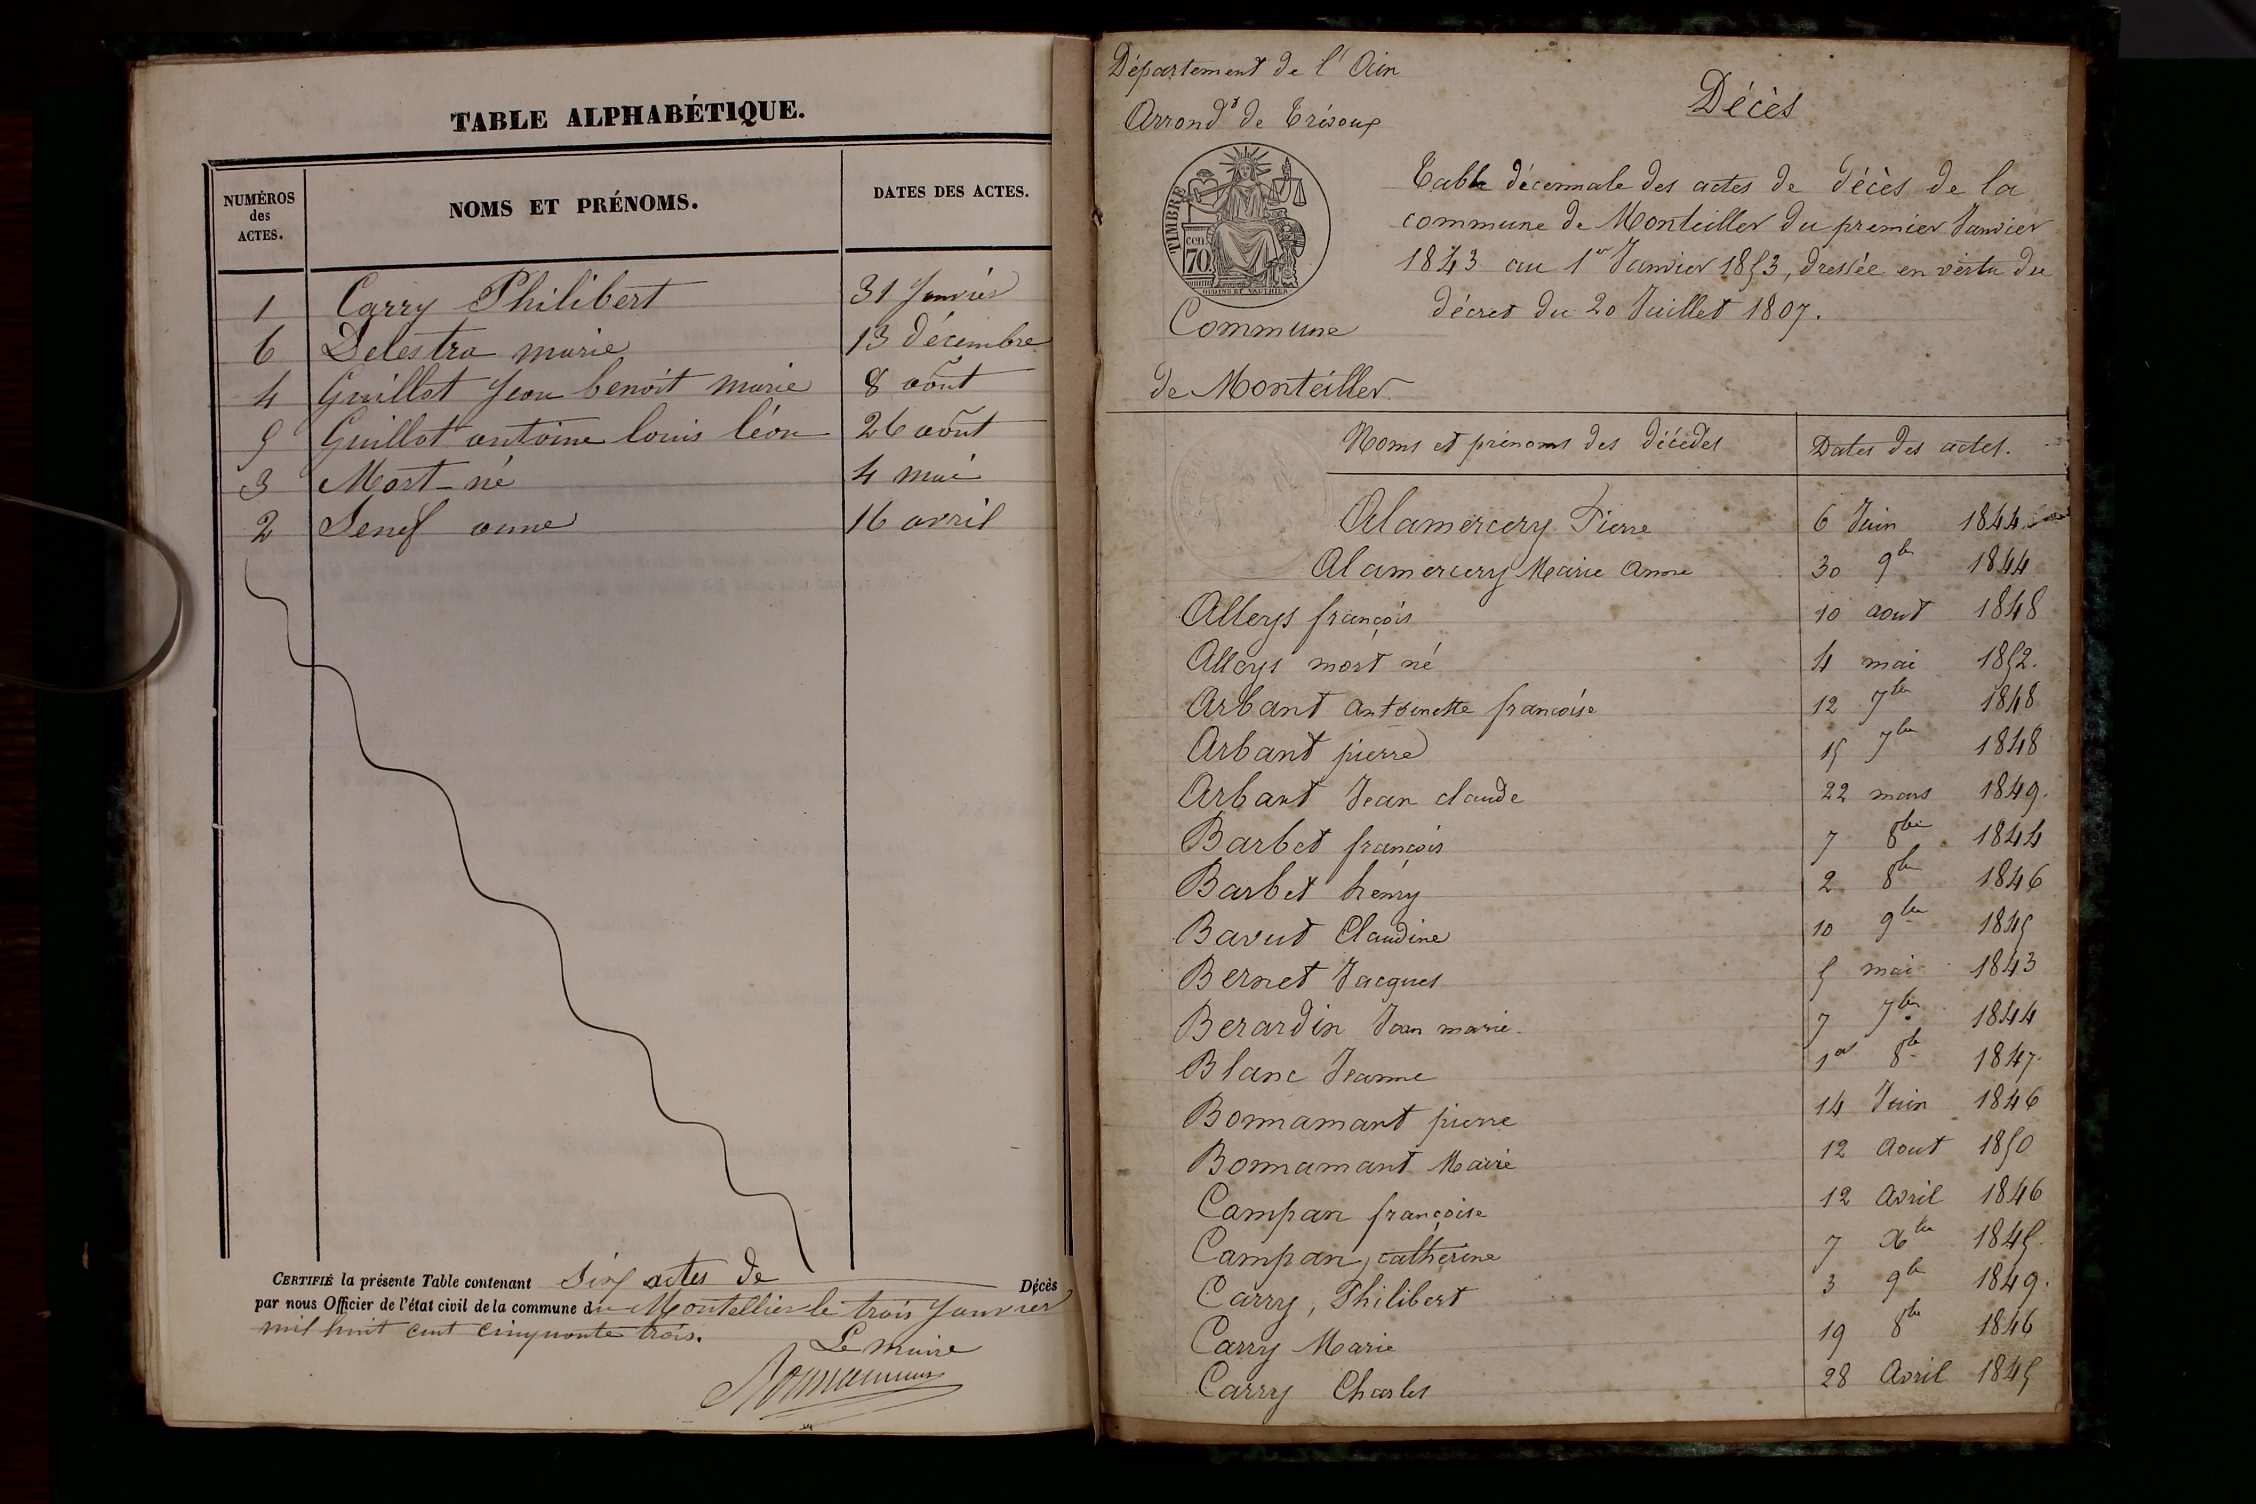 TABLE ALPHABÉTIQUE.
NUMÉROS des ACTES. NOMS ET PRÉNOMS. DATES DES ACTES.
1 Carry Philibert 31 Janvier
6 Delestra marie 13 décembre
4 Guillot Jean benoit marie 8 août
5 Guillot antoine louis léon 26 août
3 Mort-né 4 mai
2 anne 16 avril
CERTIFIÉ la présente Table contenant Six actes de Décès
par nous Officier de l'état civil de la commune de Montellier le trois Janvier
mil huit cent cinquante trois.
Le maire
Département de l'Ain
Arrondt de Trévoux
TIMBRE
cen. 70
OUDINE ET VAUTHIER
Commune
de Monteiller
Décès
Table décennale des actes de décès de la
commune de Monteiller du premier Janvier
1843 au 1er Janvier 1853, dressée en vertu du
décret du 20 Juillet 1807.
Noms et prénoms des décédés Dates des actes.
Alamercery Pierre 6 Juin 1844
Alamercery Marie Anne 30 9bre 1844
Alleys françois 10 aout 1848
Alleys mort né 4 mai 1852.
Arbant antoinette francoise 12 7bre 1848
Arbant pierre 15 7bre 1848
Arbant Jean claude 22 mars 1849.
Barbet francois 7 8bre 1844
Barbet henry 2 8bre 1846
Bavut Claudine 10 9bre 1845
Bernet Jacques 5 mai 1843
Berardin Jean marie 7 7bre 1844
Blanc Jeanne 1er 8bre 1847.
Bonnamant pierre 14 Juin 1846
Bonnamant Marie 12 Aout 1850
Campan françoise 12 Avril 1846
Campan, catherine 7 Xbre 1845
Carry, Philibert 3 9bre 1849.
Carry Marie 19 8bre 1846
Carry Charles 28 Avril 1845